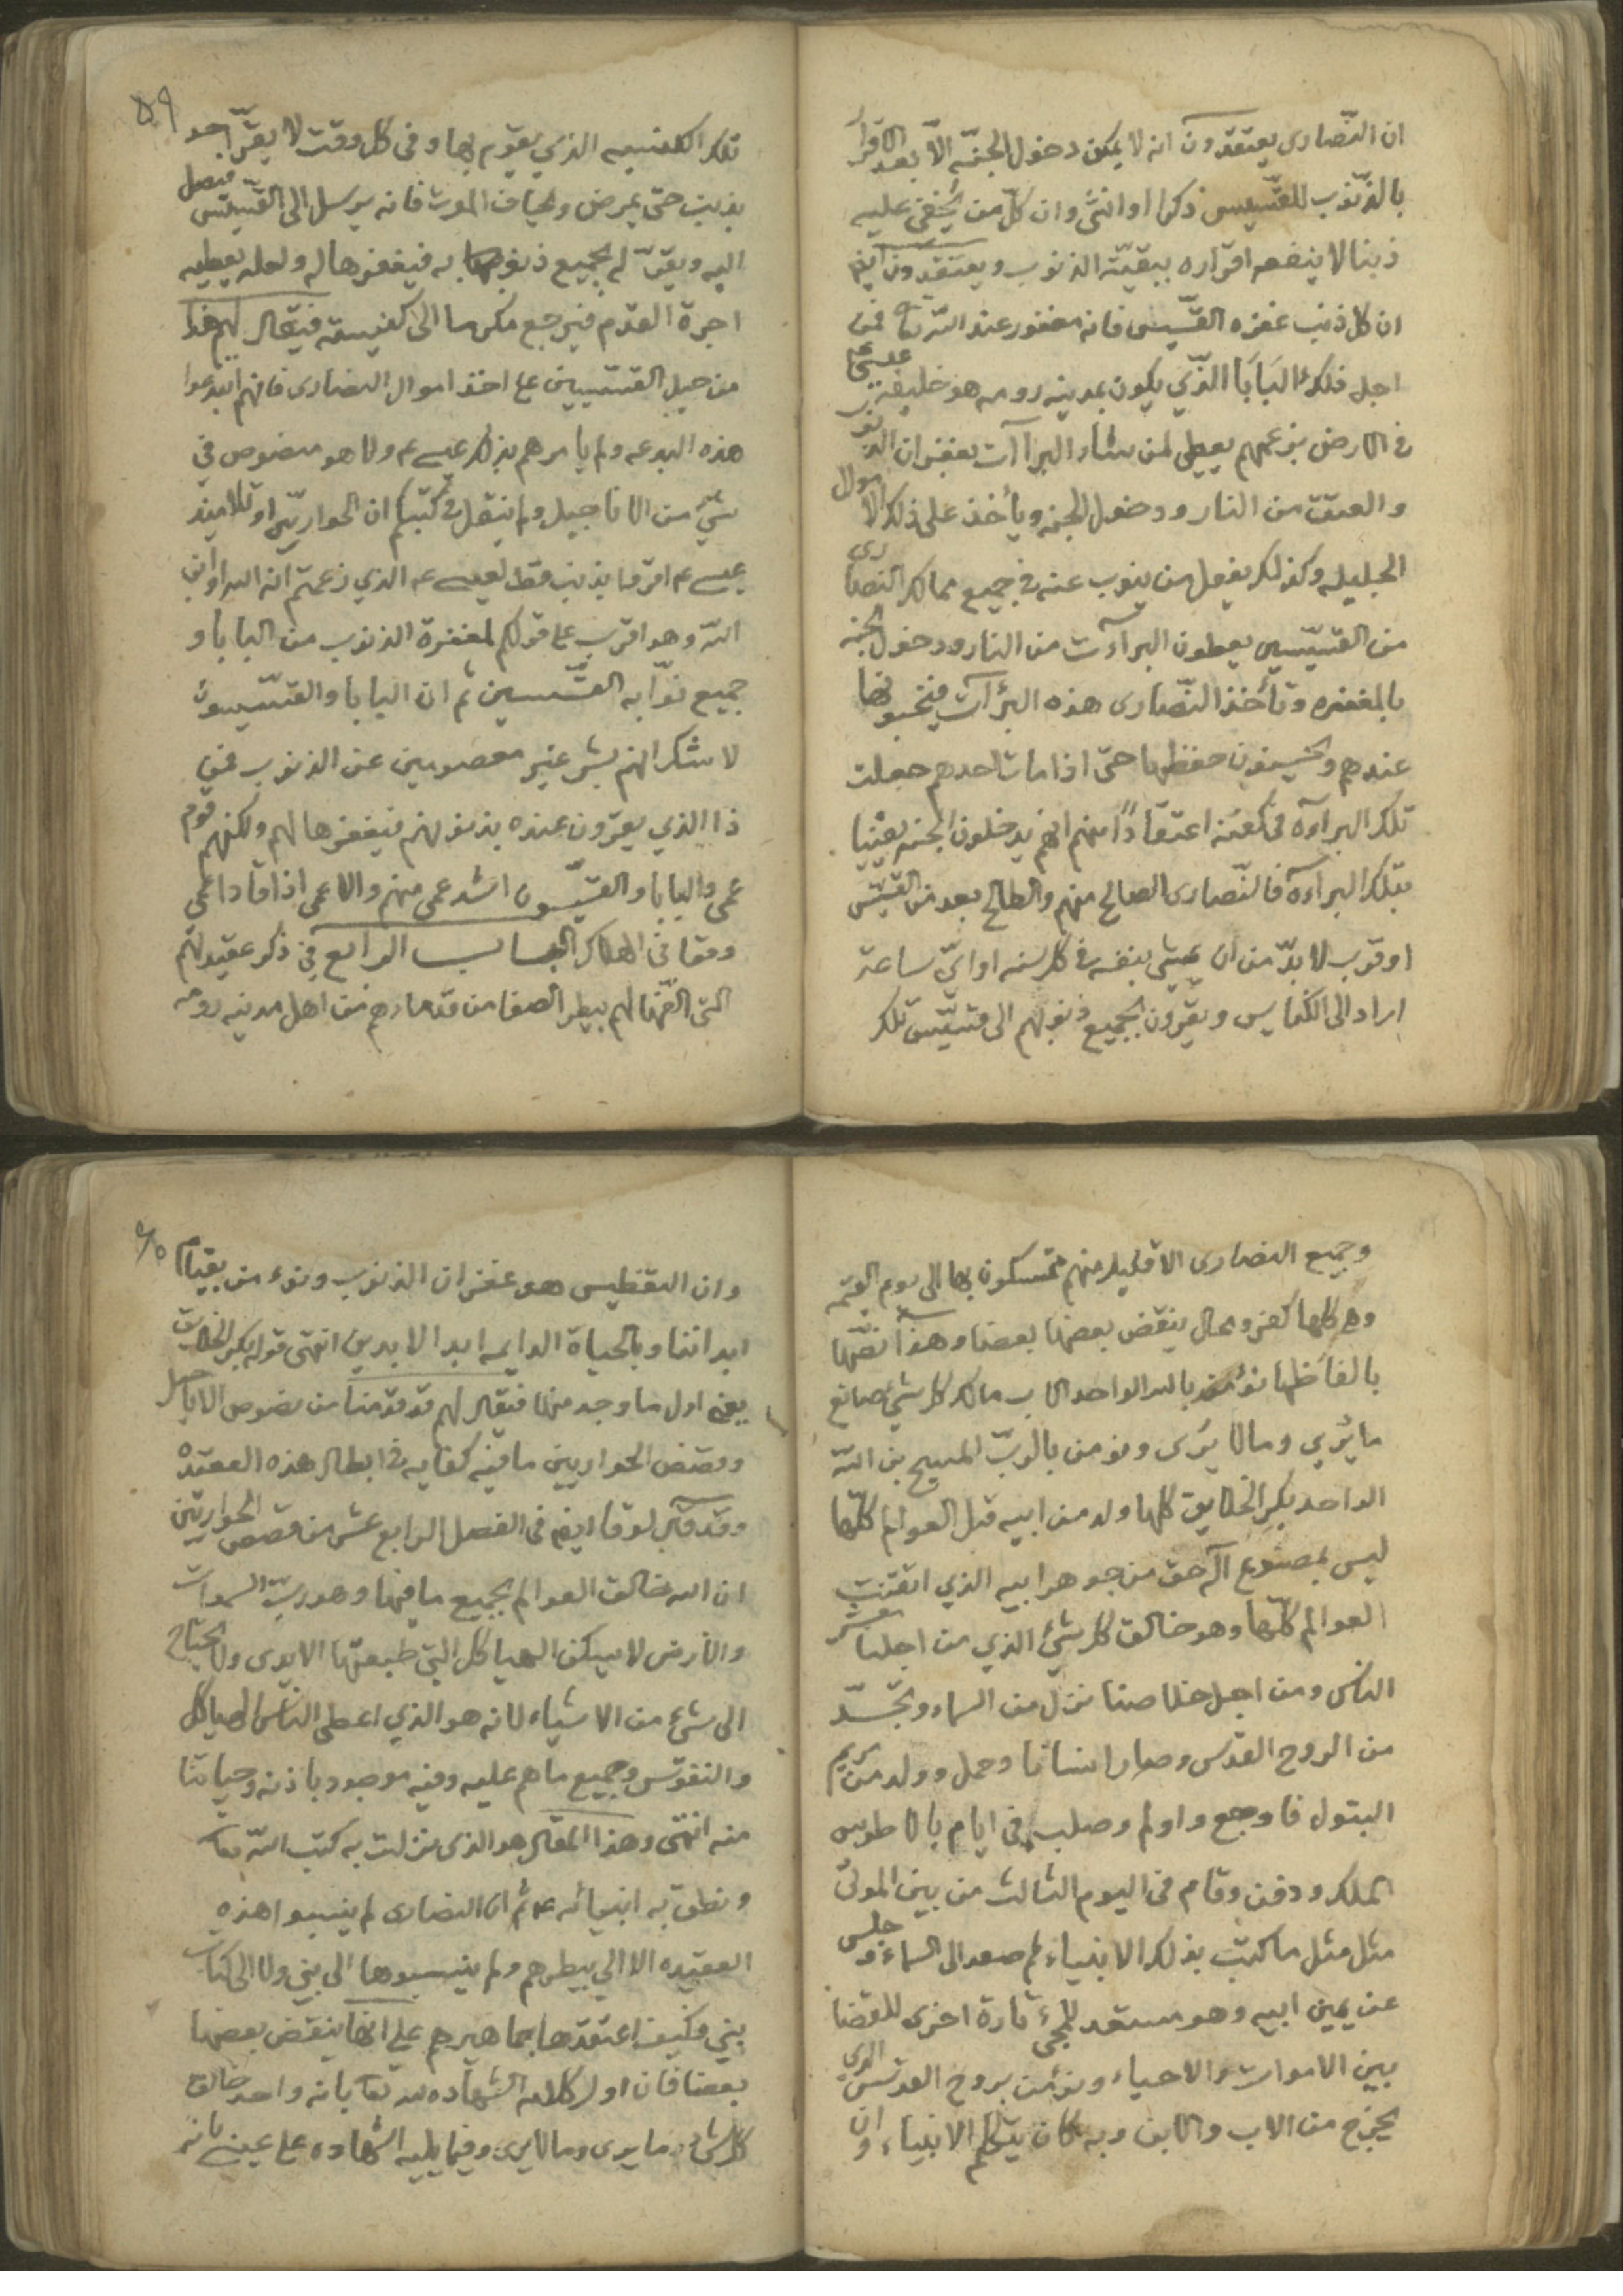 ان النّصارى يعتقدون انه لا يمكن دخول الجنّه الّا بعد الاقرار
بالذّنوب للقسّيس ذكرا او انثى وان كلّ من يخفى عليه
ذنبا لا ينفعه اقراره ببقيّة الذنوب ويعتقدون ايضا
ان كل ذنب غفره القسّيس فانه مغفور عند الله تعا فمن
اجل ذلك البَابَا الذّي يكون بمدينه رومه هو خليفة عيسى عم
فى الارض بزعمهم يعطى لمن شاء البراآت بغفران الذنوب
والعتق من النار ودخول الجنه ويأخذ على ذلك الاموال
الجليله وكذلك يفعل من ينوب عنه فى جميع ممالك النصارى
من القسّيسين يعطون البرآءت من النار ودخول الجنه
بالمغفره وتأخذ النّصارى هذه البرآآت فيخبونها
عندهم ويحسنون حفظها حتى اذا مات احدهم جعلت
تلك البرآءه فى كفنه اعتقادًا منهم انهم يدخلون الجنه يقينا
بتلك البرآءه فالنّصارى الصالح منهم والطالح بعد من القسّيس
او قرب لا بدّ من ان يمشى بنفسه فى كل سنه او ايّ ساعة
اراد الى الكنايس ويقرّون بجميع ذنوبهم الى قسّيس تلك
تلك الكنيسه الذي يقوم بها وفى كل وقت لا يقرّ احد
بذنب حتى يمرض ويخاف الموت فانه يرسل الى القسّيس فيصل
اليه ويقرّ له بجميع ذنوبه فيغفرها له ولعله يعطيه
اجرة القدم فيرجع مكرسا الى كنيسته فيقال لهم هذا
من حيل القسّيسين على اخذ اموال النصارى فانهم ابتدعوا
هذه البدعه ولم يامرهم بذلك عيسى عم ولا هو منصوص فى
شئ من الاناجيل ولم ينقل فى كتبكم ان الحواريّين او تلاميذ
عيسى عم اقرّوا بذنب قط لعيسى عم الذي زعمتم انه الله او ابن
اللّه وهو اقرب على قولكم لمغفرة الذنوب من البابا و
جميع نوّابه القسّيسين ثم ان البابا والقسّيسون
لا شك انهم بشر غير معصومين عن الذنوب فمن
ذا الذي يقرّون عنده بذنوبهم فيغفرها لهم ولكنهم قوم
عمى والبابا والقسّيسون اشد عمى منهم والاعمى اذا قاد اعمى
وقعا فى الهلاك الباب الرابع فى ذكر عقيدتهم
التى الفّها لهم بيطر الصفا من قدمائهم من اهل مدينه رومه
وجميع النصارى الا قليل منهم متمسكون بها الى يوم القيمه
وهى كلها كفر ومحال ينقض بعضها بعضا وهذا نصّها
بالفاظها نؤمن بالله الواحد الاب مالك كل شئ صانع
ما يُري وما لا يُرى ونومن بالربّ المسيح بن اللّه
الواحد بكر الخلايق كلها ولد من ابيه قبل العوالم كلّها
ليس بمصنوع آله حق من جوهر ابيه الذي اتقنت
العوالم كلّها وهو خالق كل شئ الذي من اجلنا معشر
الناس ومن اجل خلاصنا نزل من السماء وتجسّد
من الروح القدّس وصار انسانا وحمل وولد من مريم
البتول فاوجع واولم وصلب فى ايام بالاطوس
الملك ودفن وقام فى اليوم الثالث من بين الموتى
مثل مثل ما كتبت بذلك الانبياء ثم صعد الى السماء وجلس
عن يمين ابيه وهو مستعد للمجئ تارة اخرى للقضا
بين الاموات والاحياء ونؤمن بروح القدّس الذي
يخرج من الاب والابن وبه كان يتكلّم الانبياء وان
وان التغطيس هو غفران الذنوب ونومن بقيام
ابداننا وبالحياة الدايمه ابد الابدين انتهى قوله بكر الخلايق
يعنى اول ما وجد منها فيقال لهم قد قدّمنا من نصوص الاناجيل
وقصص الحواريين ما فيه كفايه فى ابطال هذه العقيده
وقد قال لوقا ايضا فى الفصل الرابع عشر من قصص الحواريّين
ان الله خالق العوالم بجميع ما فيها وهو ربّ السموات
والارض لا يسكن الهياكل التى طبعتها الايدى ولا يحتاج
الى شئ من الاشياء لانه هو الذي اعطى الناس الهياكل
والنفوس وجميع ما هم عليه وفيه موجود باذنه وحياتنا
منه انتهى وهذا المقال هو الذى نزلت به كتب اللّه تعا
ونطق به انبيائه عم ثم ان النصارى لم ينسبوا هذه
العقيده الا الى بيطرهم ولم ينسبوها الى نبى ولا الى كتاب
نبى فكيف اعتقدها جماهيرهم على انها ينقض بعضها
بعضا فان اول كلامه الشهاده لله تعا بانه واحد خالق
كل شئ ما يرى وما لا يرى وفيما يليه الشهاده على عيسى بانه